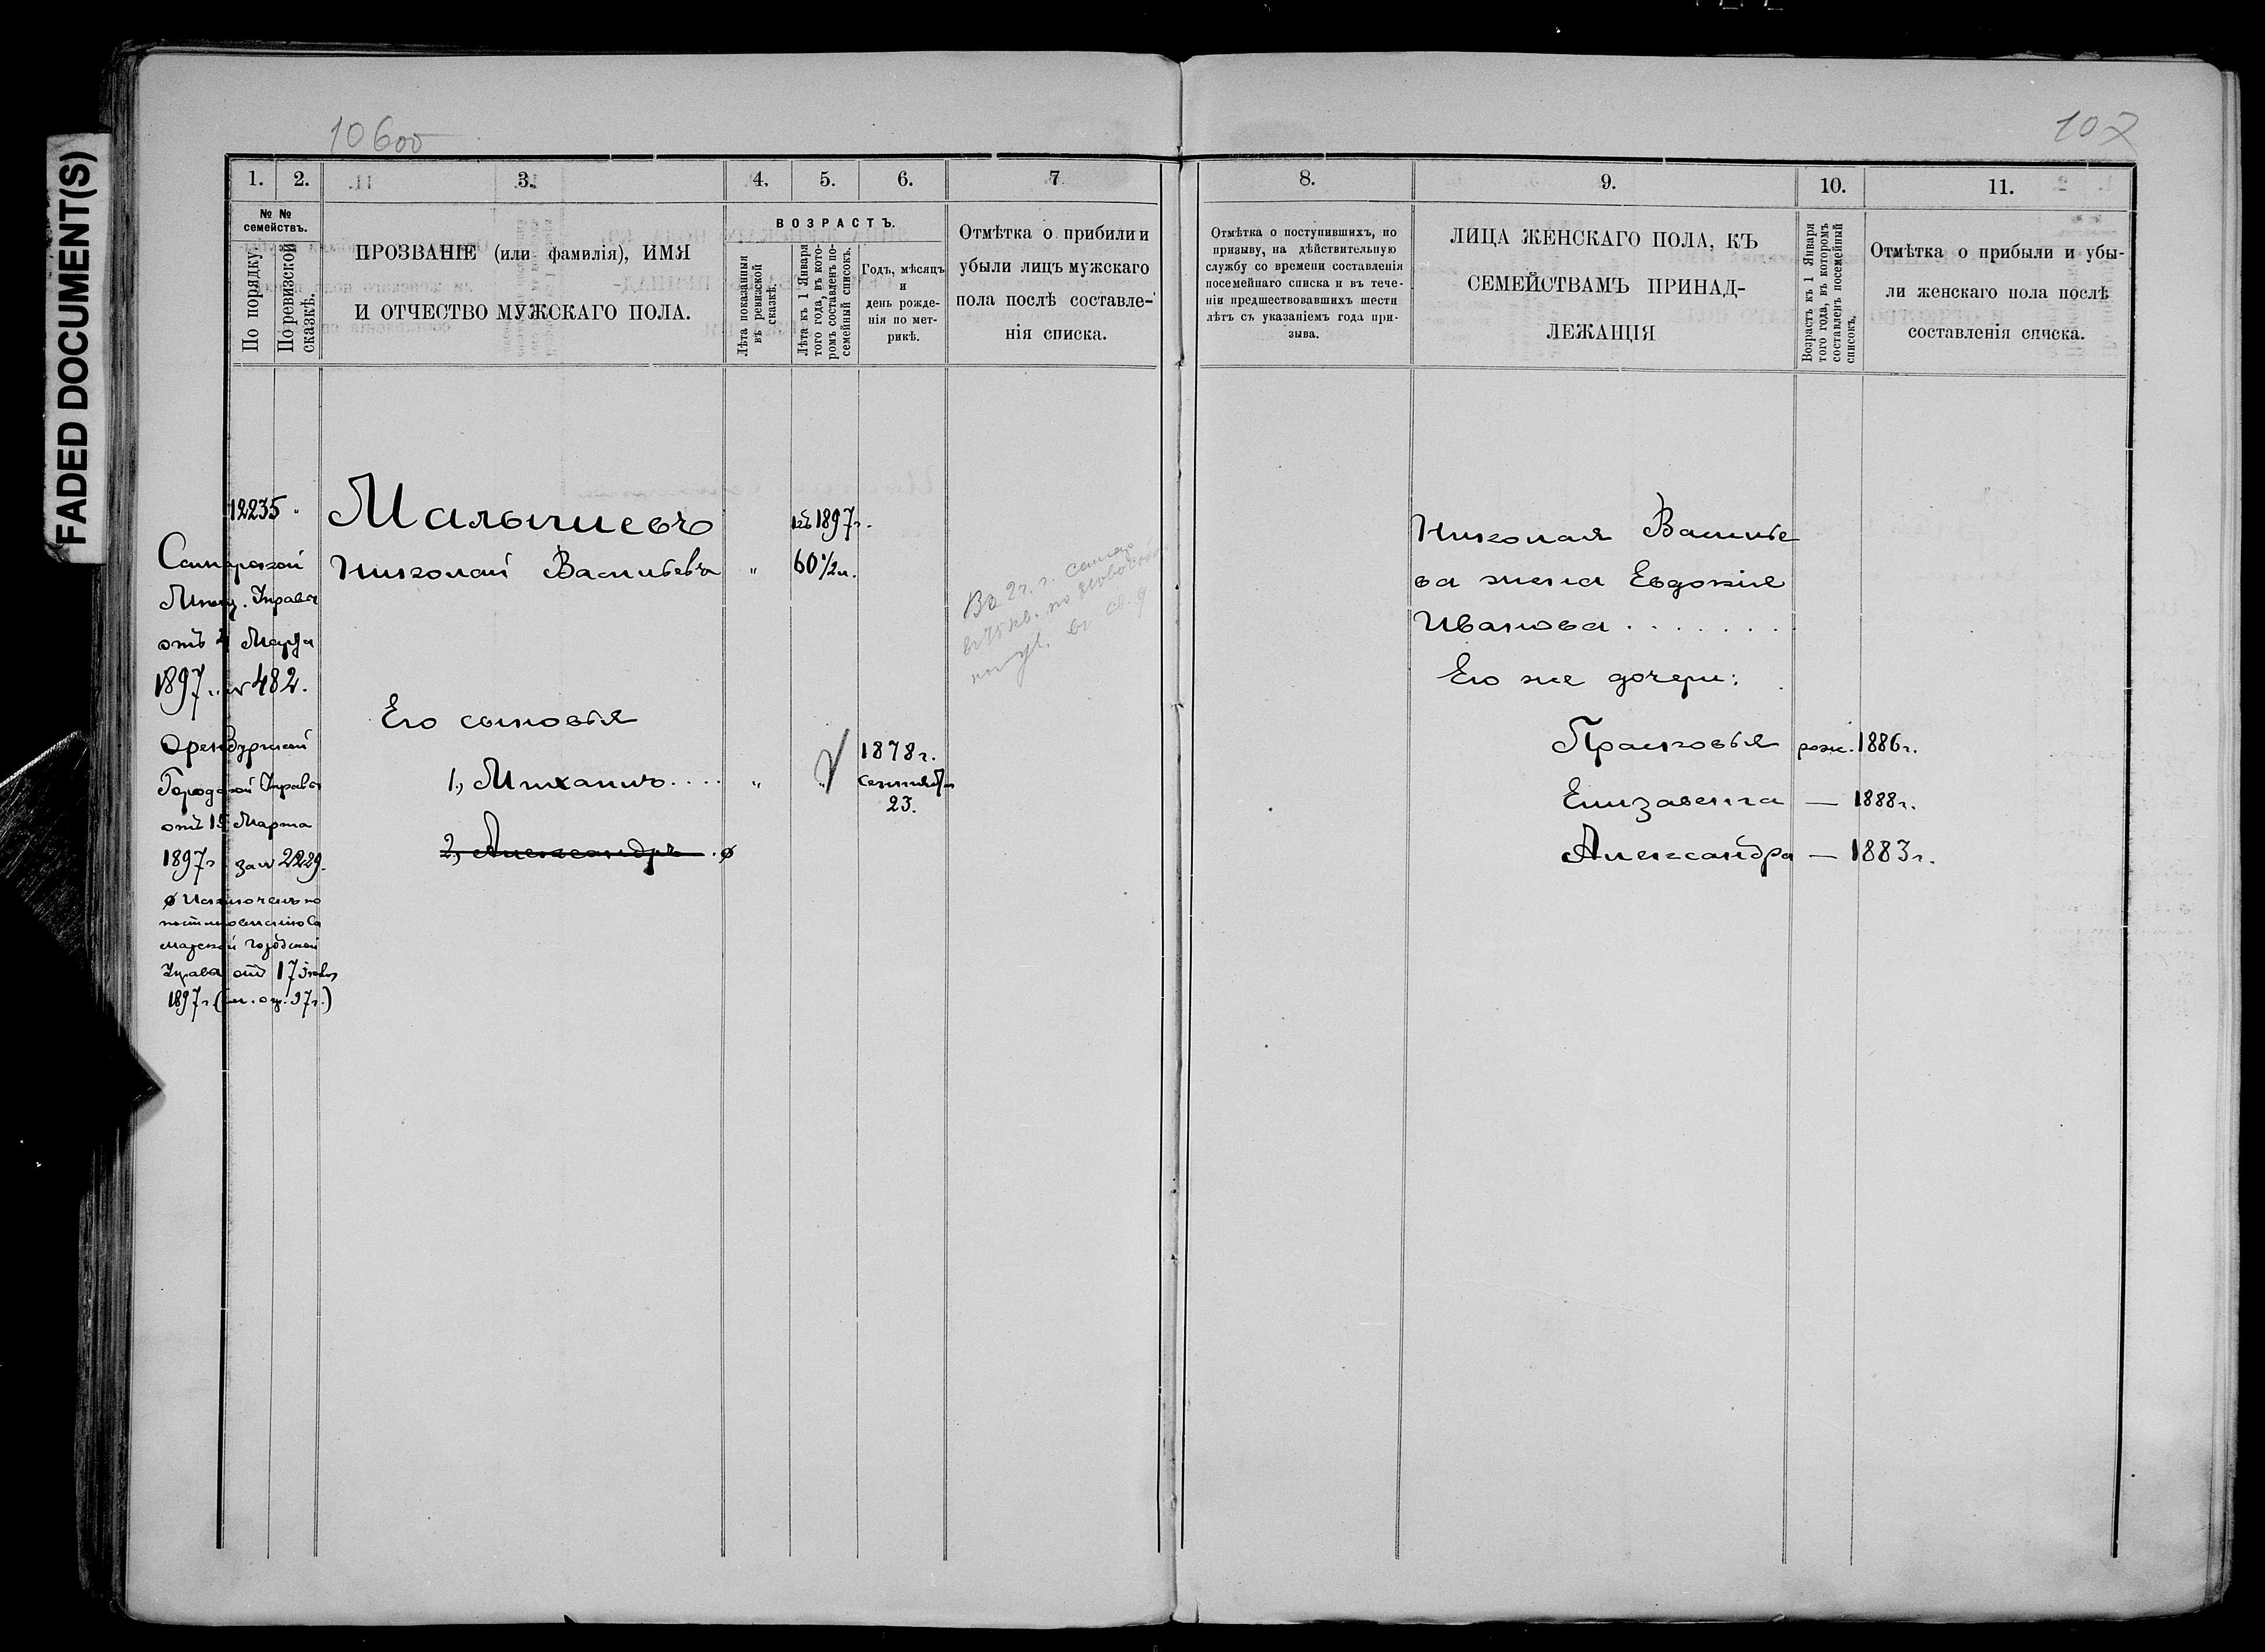 FADED DOCUMENT(S)
10600
107
1.
2.
3.
4.
5.
6.
7
№ №
семействъ.
По порядку.
По ревизской
сказкѣ.
ПРОЗВАНІЕ (или фамилія), ИМЯ
И ОТЧЕСТВО МУЖСКАГО ПОЛА.
ВОЗРАСТЪ.
Лѣта показанныя
въ ревизской
сказкѣ.
Лѣта къ 1 Января
того года, въ кото-
ромъ составленъ по-
семейный списокъ.
Годъ, мѣсяцъ
и
день рожде-
нія по мет-
рикѣ.
Отмѣтка о прибыли и
убыли лицъ мужскаго
пола послѣ составле-
нія списка.
8.
9.
10.
11.
Отмѣтка о поступившихъ, по
призыву, на дѣйствительную
службу со времени составленія
посемейнаго списка и въ тече-
ніи предшествовавшихъ шести
лѣтъ съ указаніемъ года при-
зыва.
ЛИЦА ЖЕНСКАГО ПОЛА, КЪ
СЕМЕЙСТВАМЪ ПРИНАД-
ЛЕЖАЩІЯ
Возрастъ къ 1 Января
того года, въ которомъ
составленъ посемейный
списокъ.
Отмѣтка о прибыли и убы-
ли женскаго пола послѣ
составленія списка.
12235 "
Малышевъ
1897г.
Самарской
Николай Васильевъ " 60½л.
Мѣщ. Управы
отъ 4 Марта
1897 № 482.
Его сыновья
Оренбургской
Городской Управы
отъ 15 Марта
1897г за № 2229.
1, Михаилъ . . . . " "
1878г.
Сентября
23.
2, Александръ . ø
ø Исключенъ по
постановленію Са
марской Городской
Управы отъ 17
1897г.
Во 2 ч. г.
Николая Василье
ва жена Евдокія
Иванова . . . . . . .
Его же дочери:
Прасковья рож. 1886г.
Елизавета — 1888г.
Александра — 1883г.